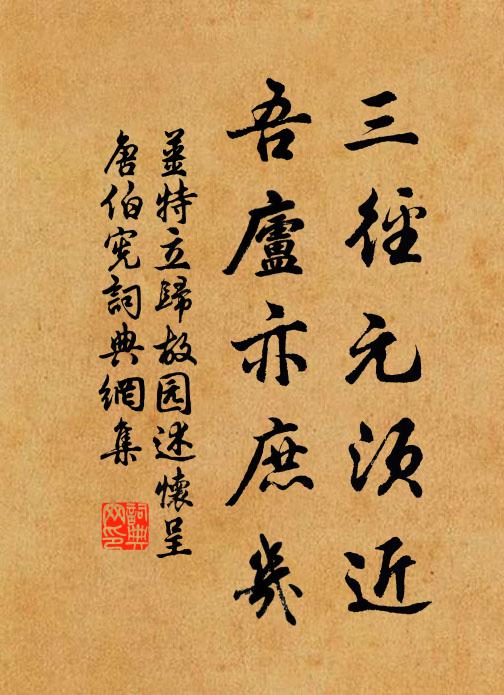 三徑元須近
吾廬亦庶幾
姜特立歸故园述懷呈
唐伯宪詞典網集
詞典
网印